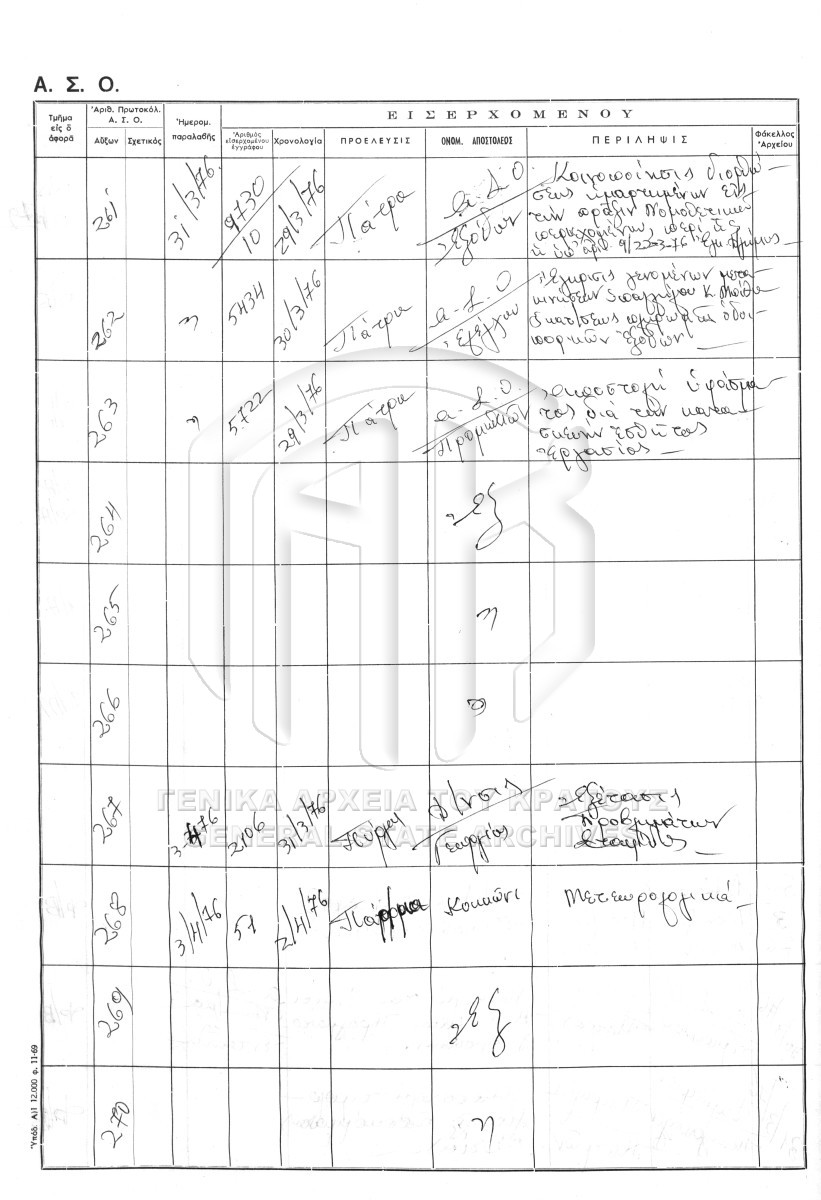 Α. Σ. Ο.
Τμῆμα εἰς ὃ ἀφορᾶ
Ἀριθ. Πρωτοκόλ. Α. Σ. Ο.
Αὔξων Σχετικός
Ἡμερομ. παραλαβῆς
ΕΙΣΕΡΧΟΜΕΝΟΥ
Ἀριθμὸς εἰσερχομένου ἐγγράφου
Χρονολογία
ΠΡΟΕΛΕΥΣΙΣ
ΟΝΟΜ. ΑΠΟΣΤΟΛΕΩΣ
ΠΕΡΙΛΗΨΙΣ
Φάκελλος Ἀρχείου
261 31/3/76 9730/10 29/3/76 Πάτρα Α.Σ.Ο Ἐξόδων
Κοινοποίησις διορθώ-
σεως ἡμαρτημένων εἰς
τὴν πρᾶξιν Νομοθετικοῦ
περιεχομένου, περὶ ἧς
ἡ ὑπ' ἀριθ. 9/22-3-76
262 〃 5434 30/3/76 Πάτρα Α.Σ.Ο Ἐλέγχου
Ἔγκρισις γενομένων μετα-
κινήσεων
ὁδοι-
πορικῶν ἐξόδων
263 〃 5722 29/3/76 Πάτρα Α.Σ.Ο. Προμηθειῶν
Ἀποστολή ὑφάσμα
τος διὰ τὴν κατα
σκευὴν ἐσθῆτος
ἐργασίας
264 Ἐξ
265 〃
266 〃
267 3-4-76 2106 31/3/76 Πύργος Δ/νσις Γεωργίας
Ἐξέτασις
Προβλημάτων
Σταφίδος
268 3/4/76 51 2/4/76 Κοκκώνι Μετεωρολογικά
269 Ἐξ
270 〃
ΓΕΝΙΚΑ ΑΡΧΕΙΑ ΤΟΥ ΚΡΑΤΟΥΣ
GENERAL STATE ARCHIVES
Ὑπόδ. Α)1 12.000 φ. 11-69